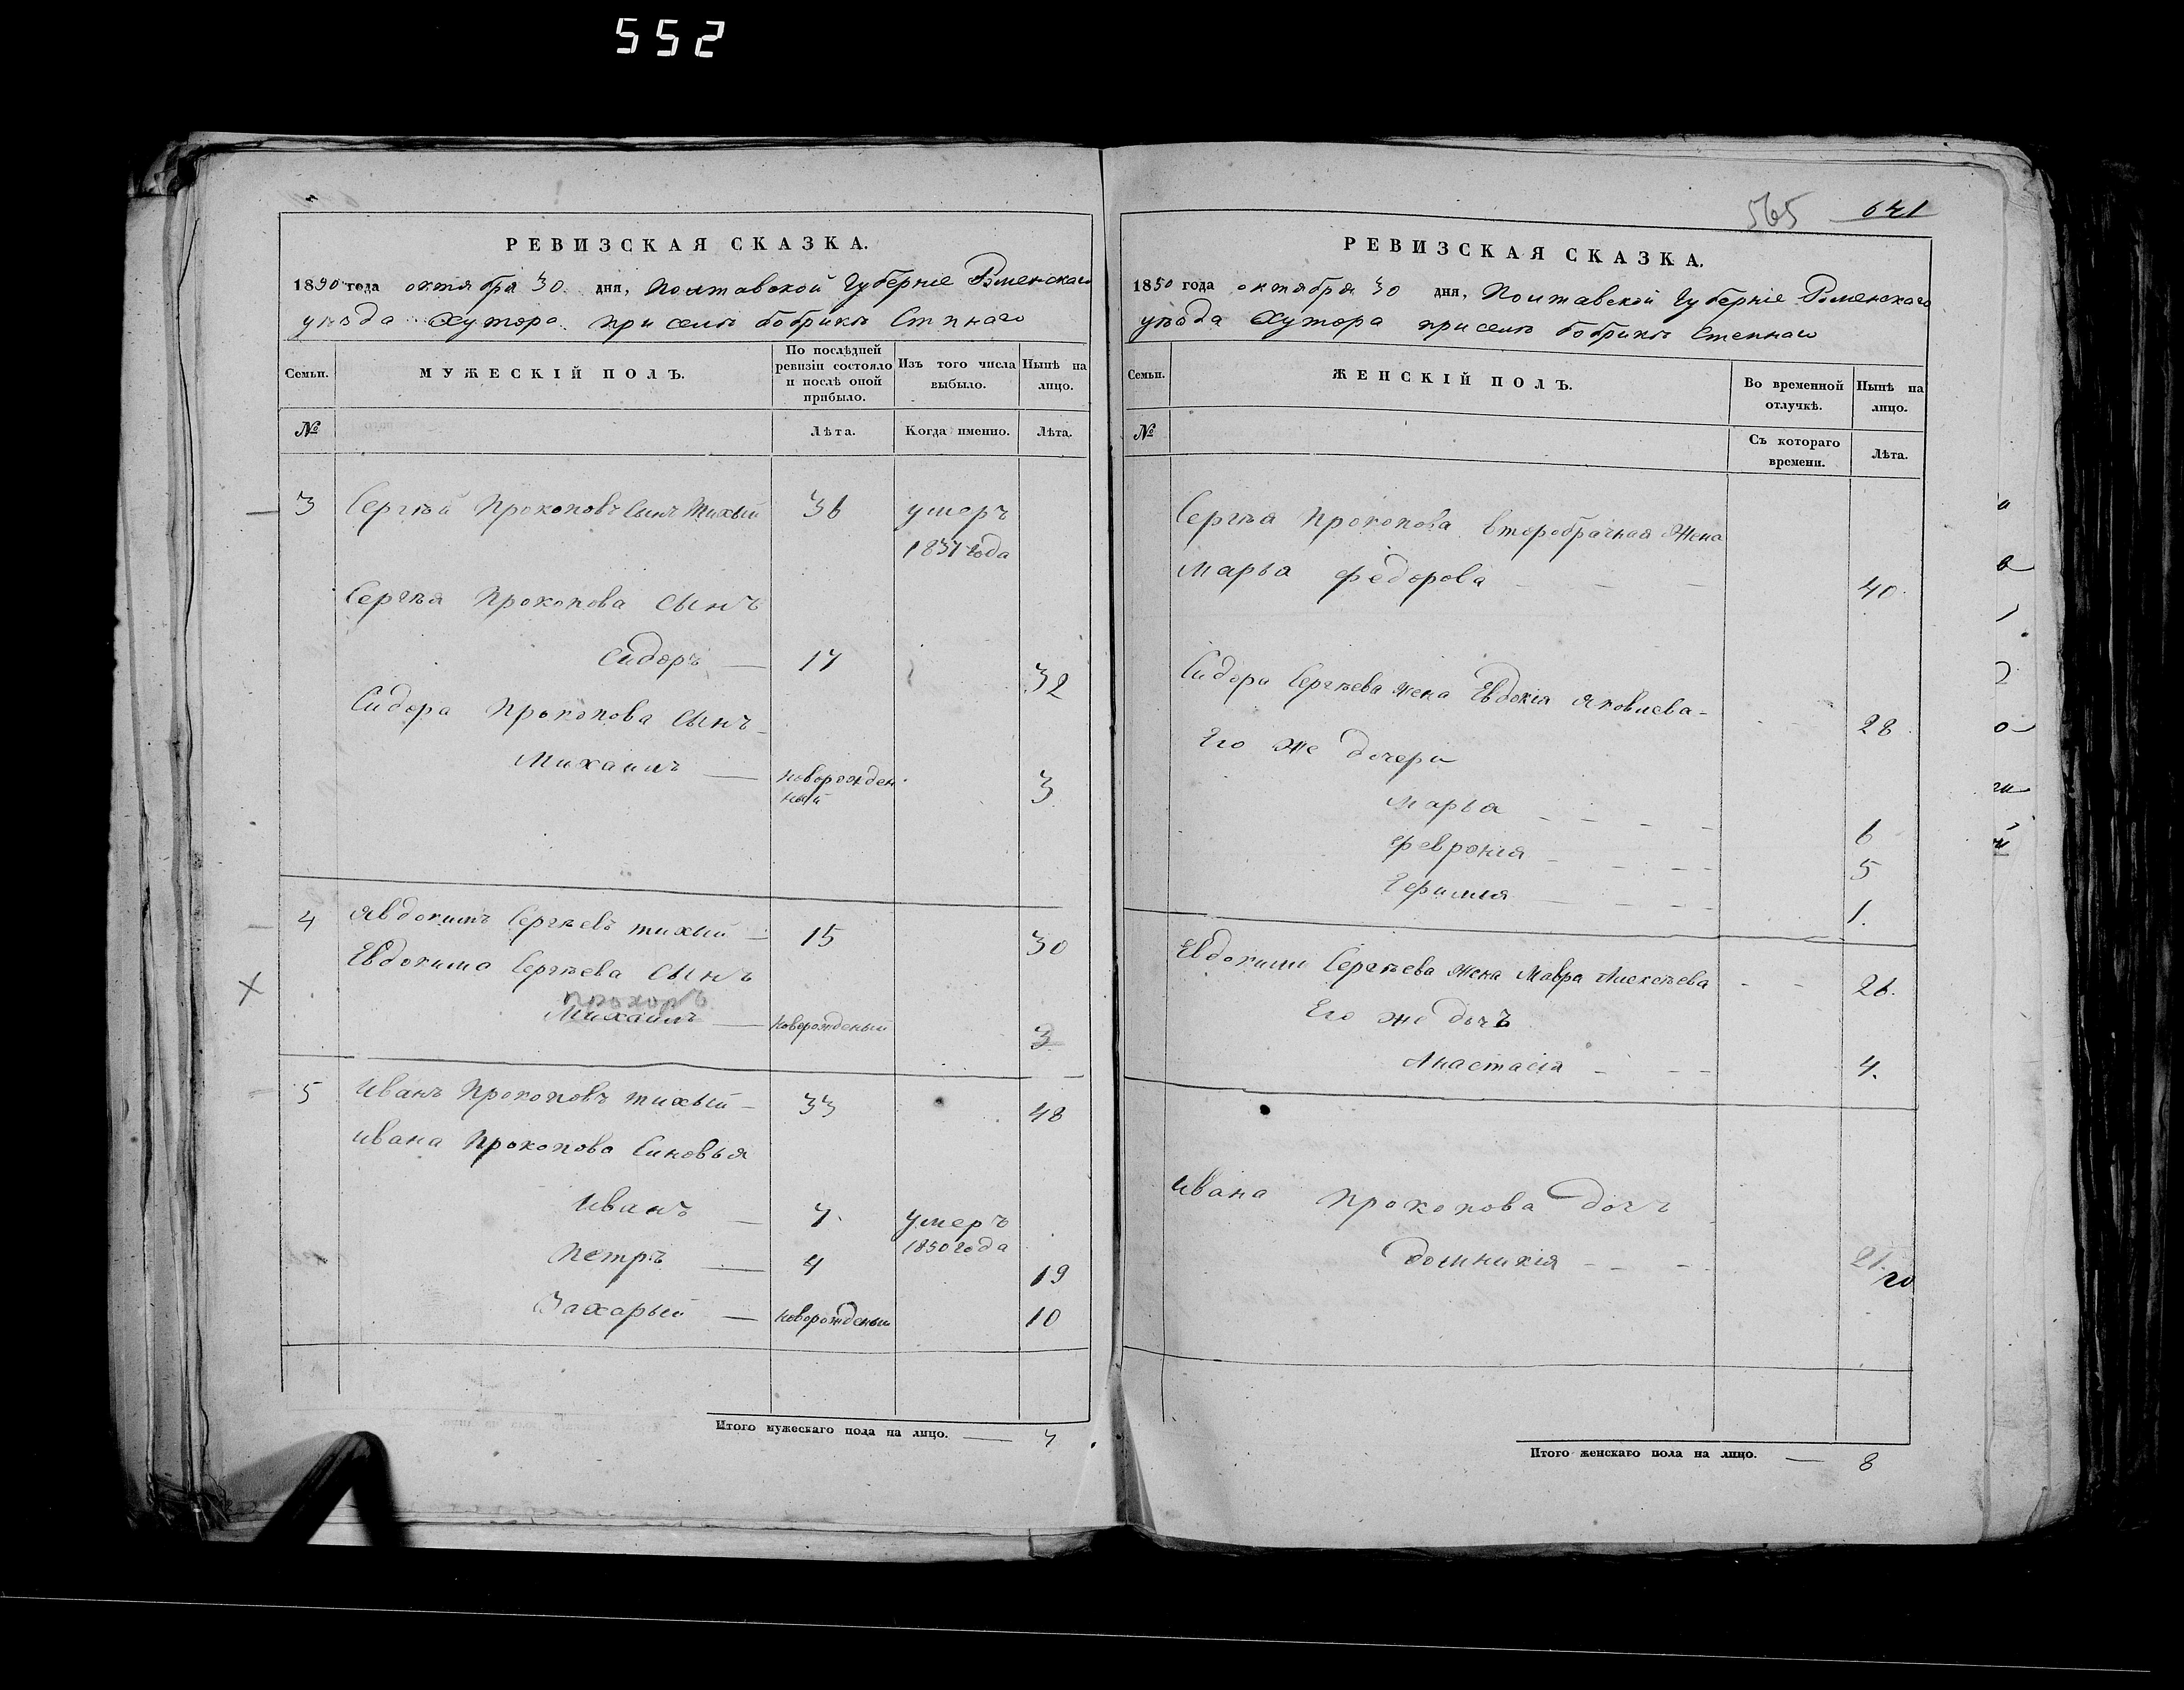 552
РЕВИЗСКАЯ СКАЗКА.
1850 года октября 30 дня, Полтавской Губерніе Роменскаго
уезда Хутора при селѣ бобрикѣ Стпнаго
Семьи.
МУЖЕСКІЙ ПОЛЪ.
По послѣдней ревизіи состояло и послѣ оной прибыло.
Изъ того числа выбыло.
Нынѣ на лицо.
№
Лѣта.
Когда именно.
Лѣта.
3 Сергѣй Прокоповъ Сынъ Тихый 36 умеръ
1837 года
Сергѣя Прокопова сынъ
Сидоръ — 17 32
Сидора Прокопова сынъ
Михаилъ — новорожден
ный 3
4 Явдокимъ Сергѣевъ тихый — 15 30
Евдокима Сергѣева сынъ
прохоръ
Михаилъ — новорожденый 3
5 Иванъ Прокоповъ тихый — 33 48
Ивана Прокопова Синовья
Иванъ — 7 умеръ
1850 года
Петръ — 4 19
Захарый — новорожденый 10
Итого мужескаго пола на лицо. — 7
565 641
РЕВИЗСКАЯ СКАЗКА.
1850 года октября 30 дня, Полтавской Губерніе Роменскаго
уезда Хутора при селѣ бобрикѣ Степнаго
Семьи.
ЖЕНСКІЙ ПОЛЪ.
Во временной отлучкѣ.
Нынѣ на лицо.
№
Съ котораго времени.
Лѣта.
Сергѣя Прокопова второбрачная Жена
Марья федорова 40
Сидора Сергѣева жена Евдокія Яковлева — 28
Его же дочери
Марья 6
Февронія 5
Ефимія 1.
Евдокима Сергѣева жена Мавра Алексѣева 26.
Его же дочъ
Анастасія 4.
Ивана Прокопова дочъ
Домникія 21. 20
Итого женскаго пола на лицо. — 8